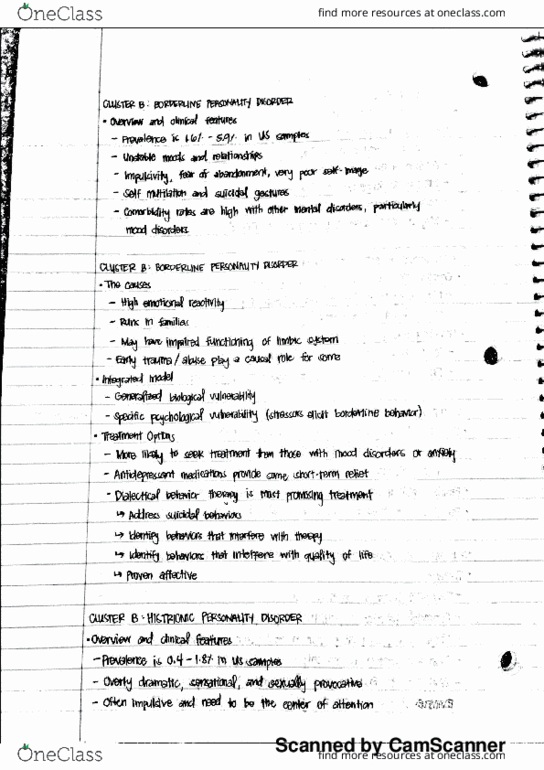 OneClass
find more resources at oneclass.com
CLUSTER B: BORDERLINE PERSONALITY DISORDER
• Overview and clinical features
– Prevalence is 1.6% – 5.9% in US samples
– Unstable moods and relationships
– Impulsivity, fear of abandonment, very poor self-image
– Self mutilation and suicidal gestures
– Comorbidity rates are high with other mental disorders, particularly
mood disorders
CLUSTER B: BORDERLINE PERSONALITY DISORDER
• The causes
– High emotional reactivity
– Runs in families
– May have impaired functioning of limbic system
– Early trauma/abuse play a causal role for some
• Integrated model
– Generalized biological vulnerability
– Specific psychological vulnerability (stressors elicit borderline behavior)
• Treatment Options
– More likely to seek treatment than those with mood disorders or anxiety
– Antidepressant medications provide some short-term relief
– Dialectical behavior therapy is most promising treatment
↳ Address suicidal behaviors
↳ Identify behaviors that interfere with therapy
↳ Identify behaviors that interfere with quality of life
↳ Proven affective
CLUSTER B: HISTRIONIC PERSONALITY DISORDER
• Overview and clinical features
– Prevalence is 0.4 – 1.8% in US samples
– Overty dramatic, sensational, and sexually provocative
– Often impulsive and need to be the center of attention
Scanned by CamScanner
OneClass
find more resources at oneclass.com